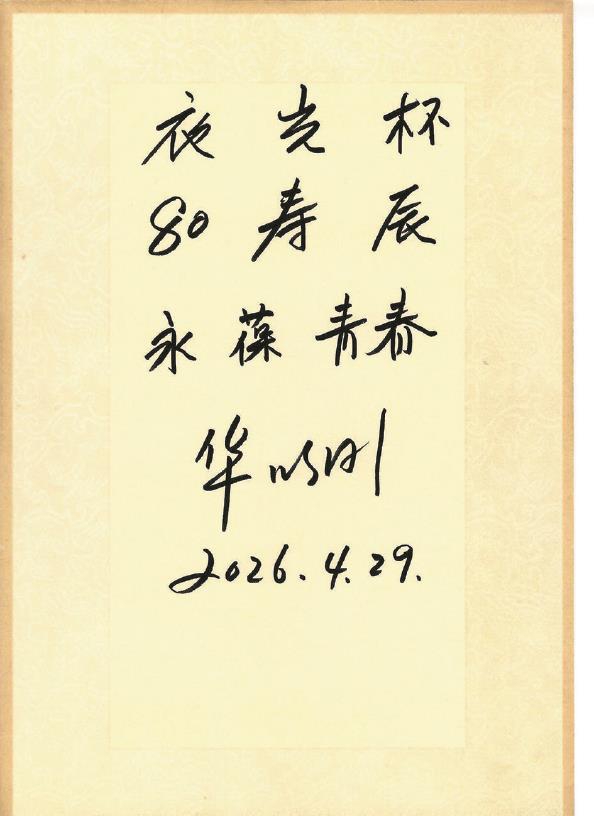 夜光杯
80寿辰
永葆青春
华以刚
2026.4.29.